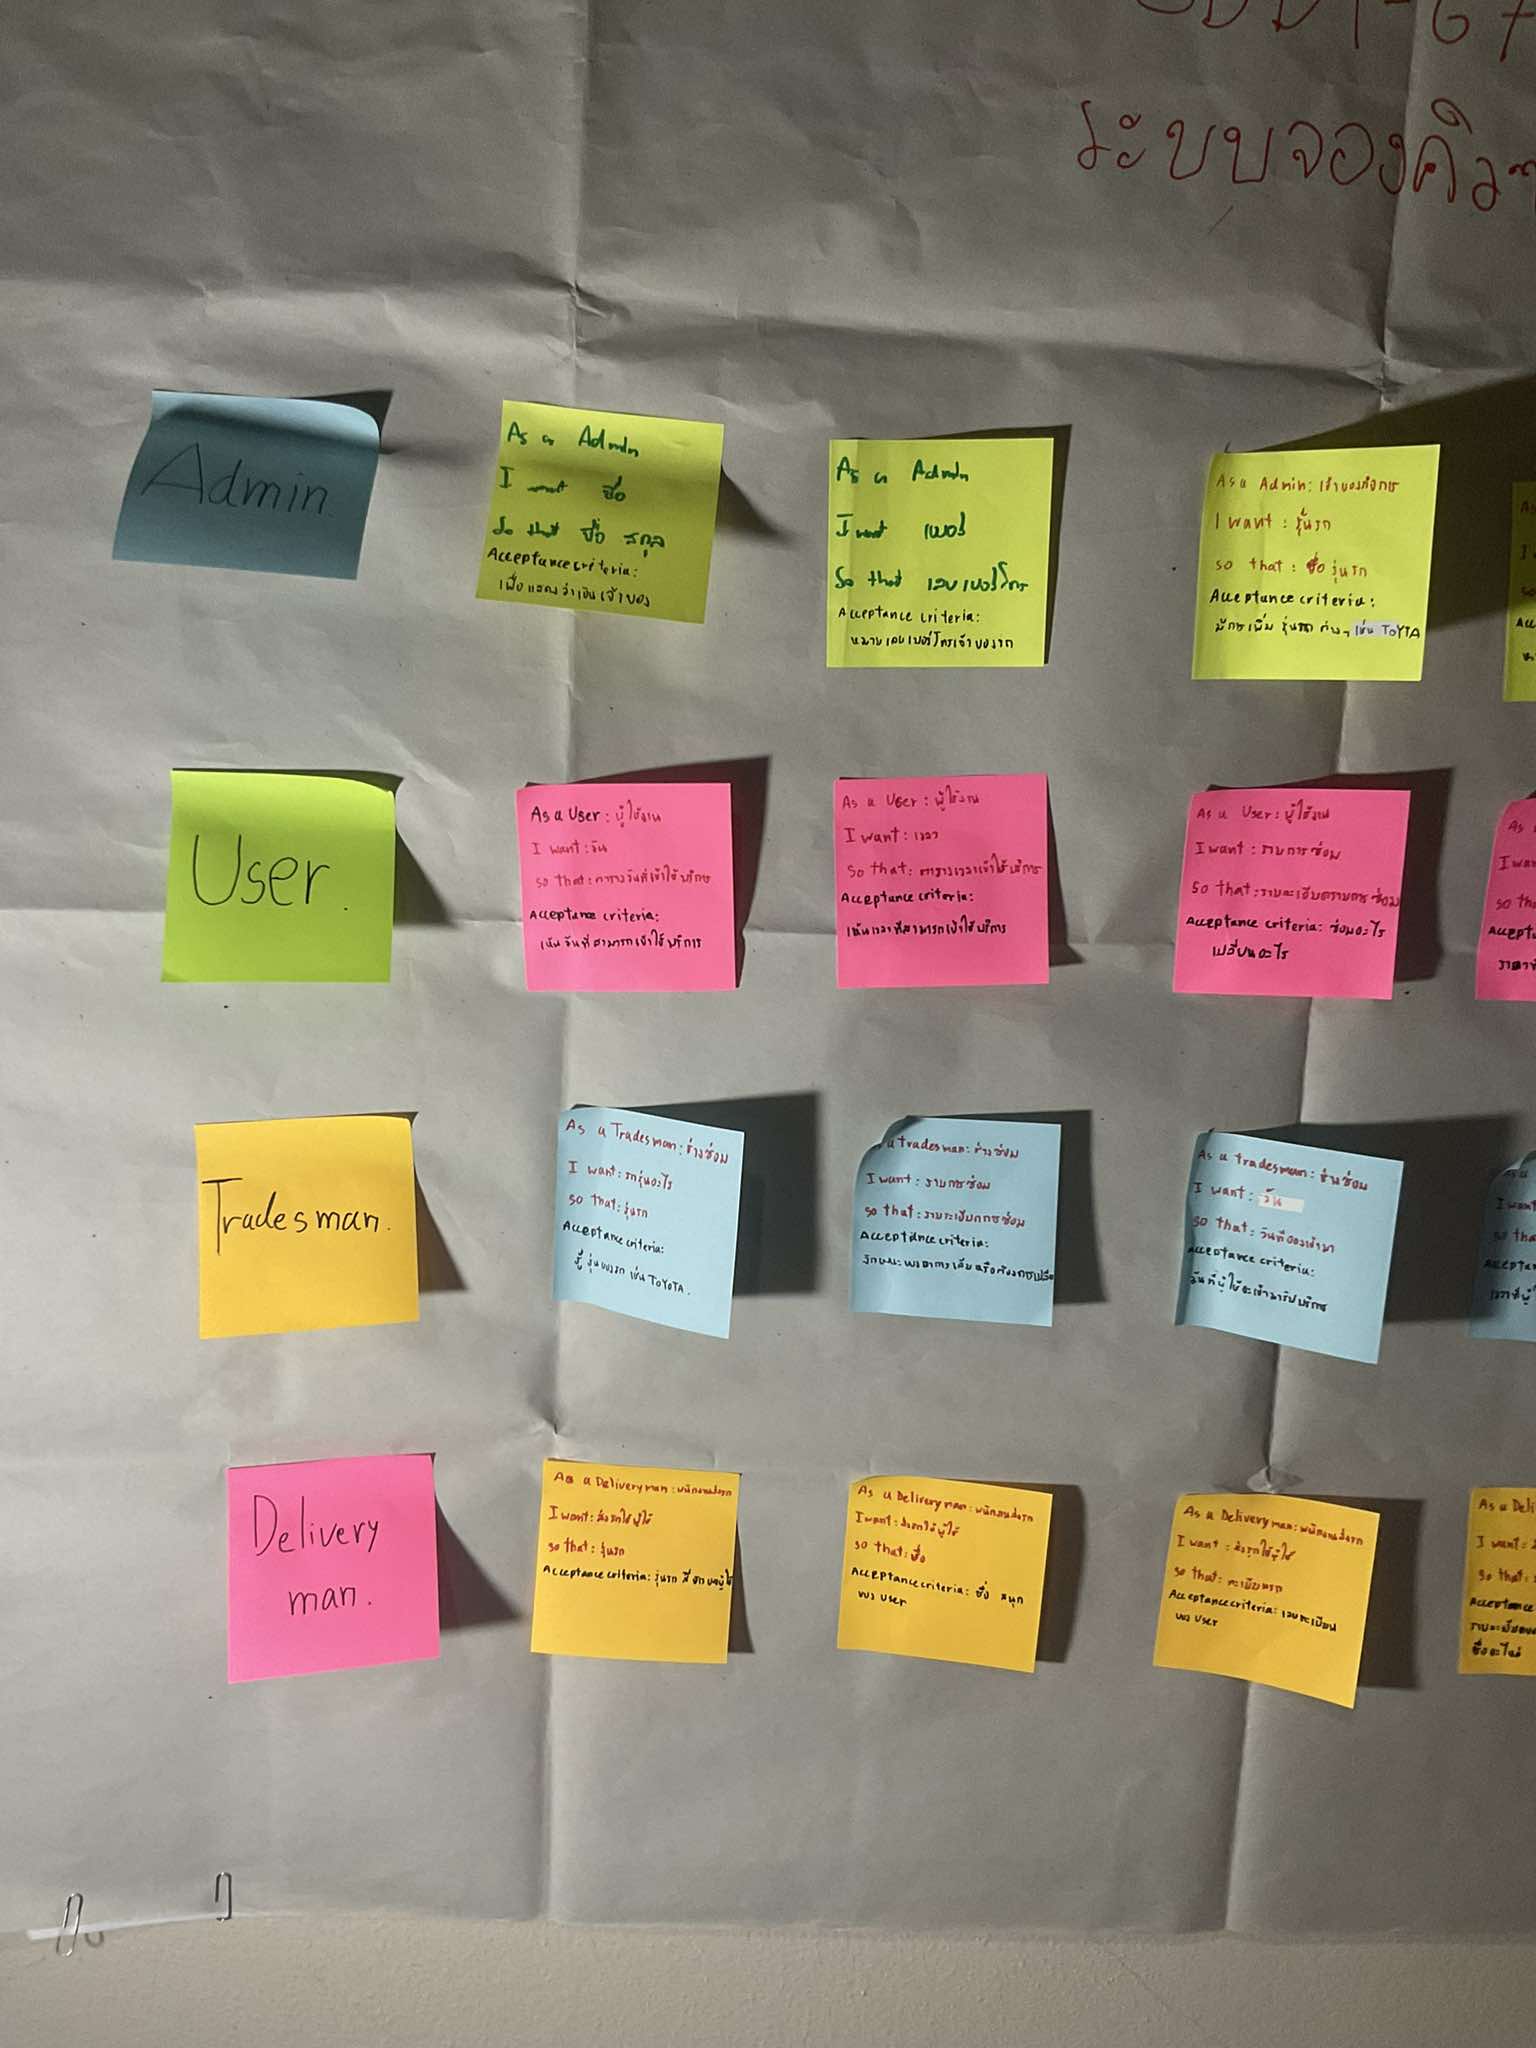 ระบบจองคิว
Admin.
As a Admin
I want ชื่อ
So that ชื่อ สกุล
Acceptance criteria:
เพื่อแสดงว่าเป็นเจ้าของ
As a Admin
I want เบอร์
So that เลขเบอร์โทร
Acceptance criteria:
หมายเลขเบอร์โทรเจ้าของรถ
As a Admin: เจ้าของกิจการ
I want : รุ่นรถ
so that : รุ่นรถ
Acceptance criteria:
มีการเพิ่ม รุ่นรถ ต่างๆ เช่น TOYTA
User.
As a User : ผู้ใช้งาน
I want : วัน
so that : ตารางวันที่เข้าใช้บริการ
Acceptance criteria:
เห็นวันที่สามารถเข้าใช้บริการ
As a User : ผู้ใช้งาน
I want : เวลา
so that : ตารางเวลาเข้าใช้บริการ
Acceptance criteria:
เห็นเวลาที่สามารถเข้าใช้บริการ
As a User : ผู้ใช้งาน
I want : รายการซ่อม
so that : รายละเอียดรายการซ่อม
Acceptance criteria: ซ่อมอะไร
เปลี่ยนอะไร
Tradesman.
As a Tradesman: ช่างซ่อม
I want : รถรุ่นอะไร
so that : รุ่นรถ
Acceptance criteria:
รู้ รุ่นของรถ เช่น TOYOTA.
a tradesman: ช่างซ่อม
I want : รายการซ่อม
so that : รายละเอียดการซ่อม
Acceptance criteria:
As a tradesman: ช่างซ่อม
I want : วัน
so that : วันที่จองเข้ามา
Acceptance criteria:
วันที่ผู้ใช้จะเข้ามารับบริการ
Delivery
man.
As a Delivery man: พนักงานส่งรถ
I want : ส่งรถให้ผู้ใช้
so that : รุ่นรถ
Acceptance criteria: รุ่นรถ สี
As a Delivery man: พนักงานส่งรถ
I want : ส่งรถให้ผู้ใช้
so that : ชื่อ
Acceptance criteria: ชื่อ สกุล
ของ User
As a Delivery man: พนักงานส่งรถ
I want : ส่งรถให้ผู้ใช้
so that : ทะเบียนรถ
Acceptance criteria: เลขทะเบียน
ของ User